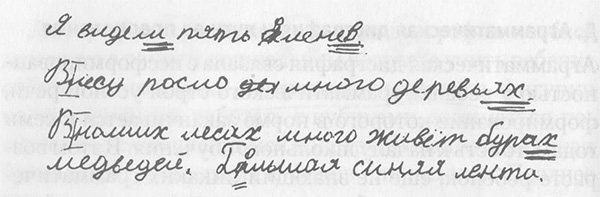 Я видем пять еленев
Влесу росло много деревьях.
Внаших лесах много живёт бурах
медведей. Большая синяя лента.